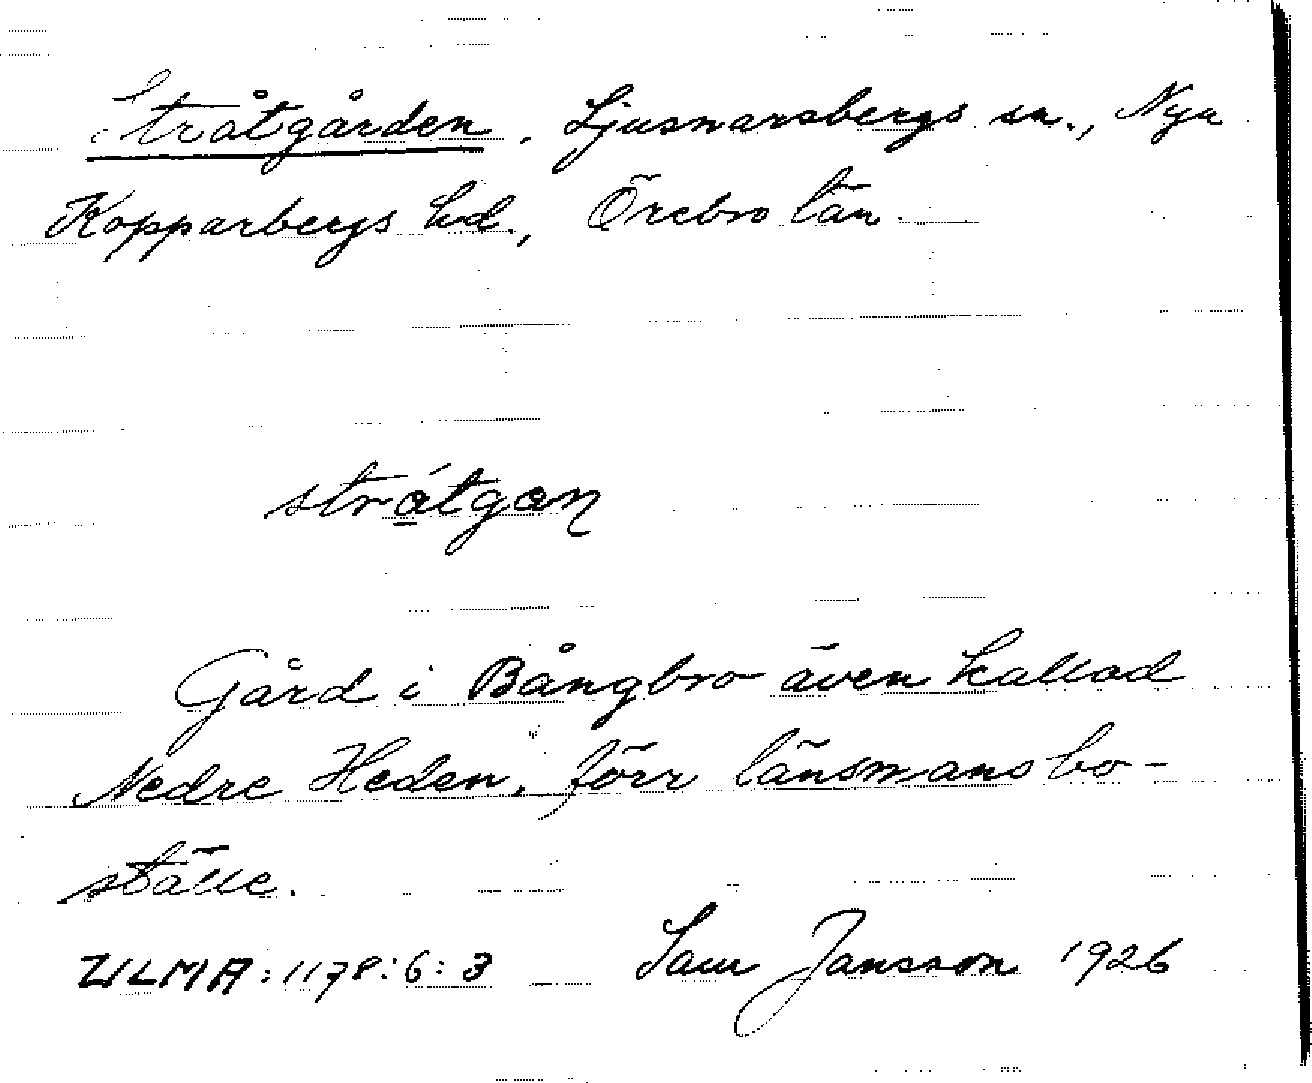 Stråtgården, Ljusnarsbergs sn., Nya
Kopparbergs hd., Örebro län.
strátgan
Gård i Bångbro även kallad
Nedre Heden, förr länsmansbo-
ställe.
ULMA: 1178:6:3 Sam Jansson 1926